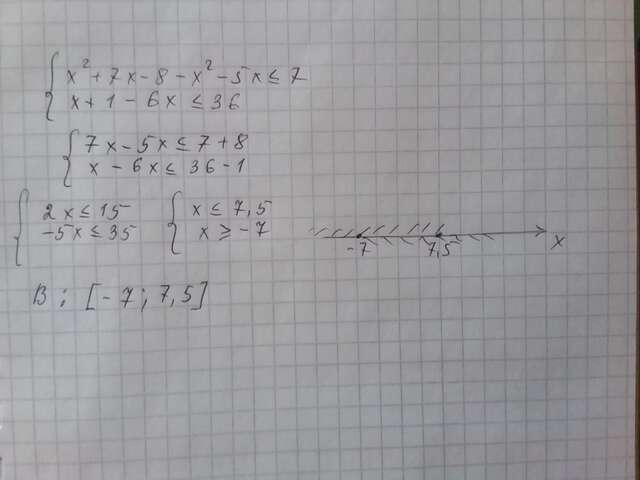 x² + 7x - 8 - x² - 5x ≤ 7
x + 1 - 6x ≤ 36
7x - 5x ≤ 7 + 8
x - 6x ≤ 36 - 1
2x ≤ 15
-5x ≤ 35
x ≤ 7,5
x ≥ -7
-7 7,5 x
В: [-7; 7,5]